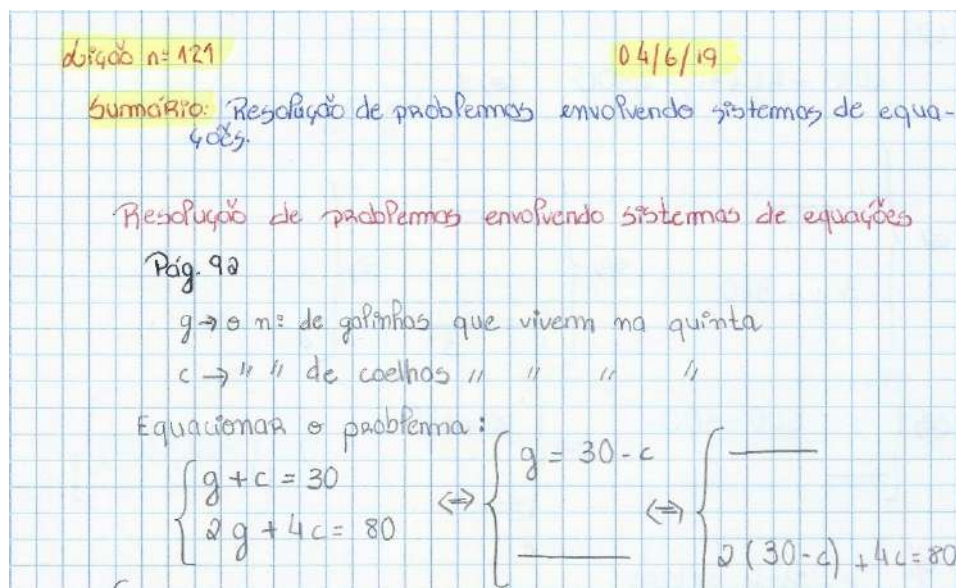 Lição nº 121 04/6/19
Sumário: Resolução de problemas envolvendo sistemas de equa-
ções.
Resolução de problemas envolvendo sistemas de equações
Pág. 92
g → o nº de galinhas que vivem na quinta
c → " " de coelhos " " " "
Equacionar o problema:
{ g + c = 30 ⇔ { g = 30 - c ⇔ { ———
{ 2g + 4c = 80 { ——— { 2(30 - c) + 4c = 80